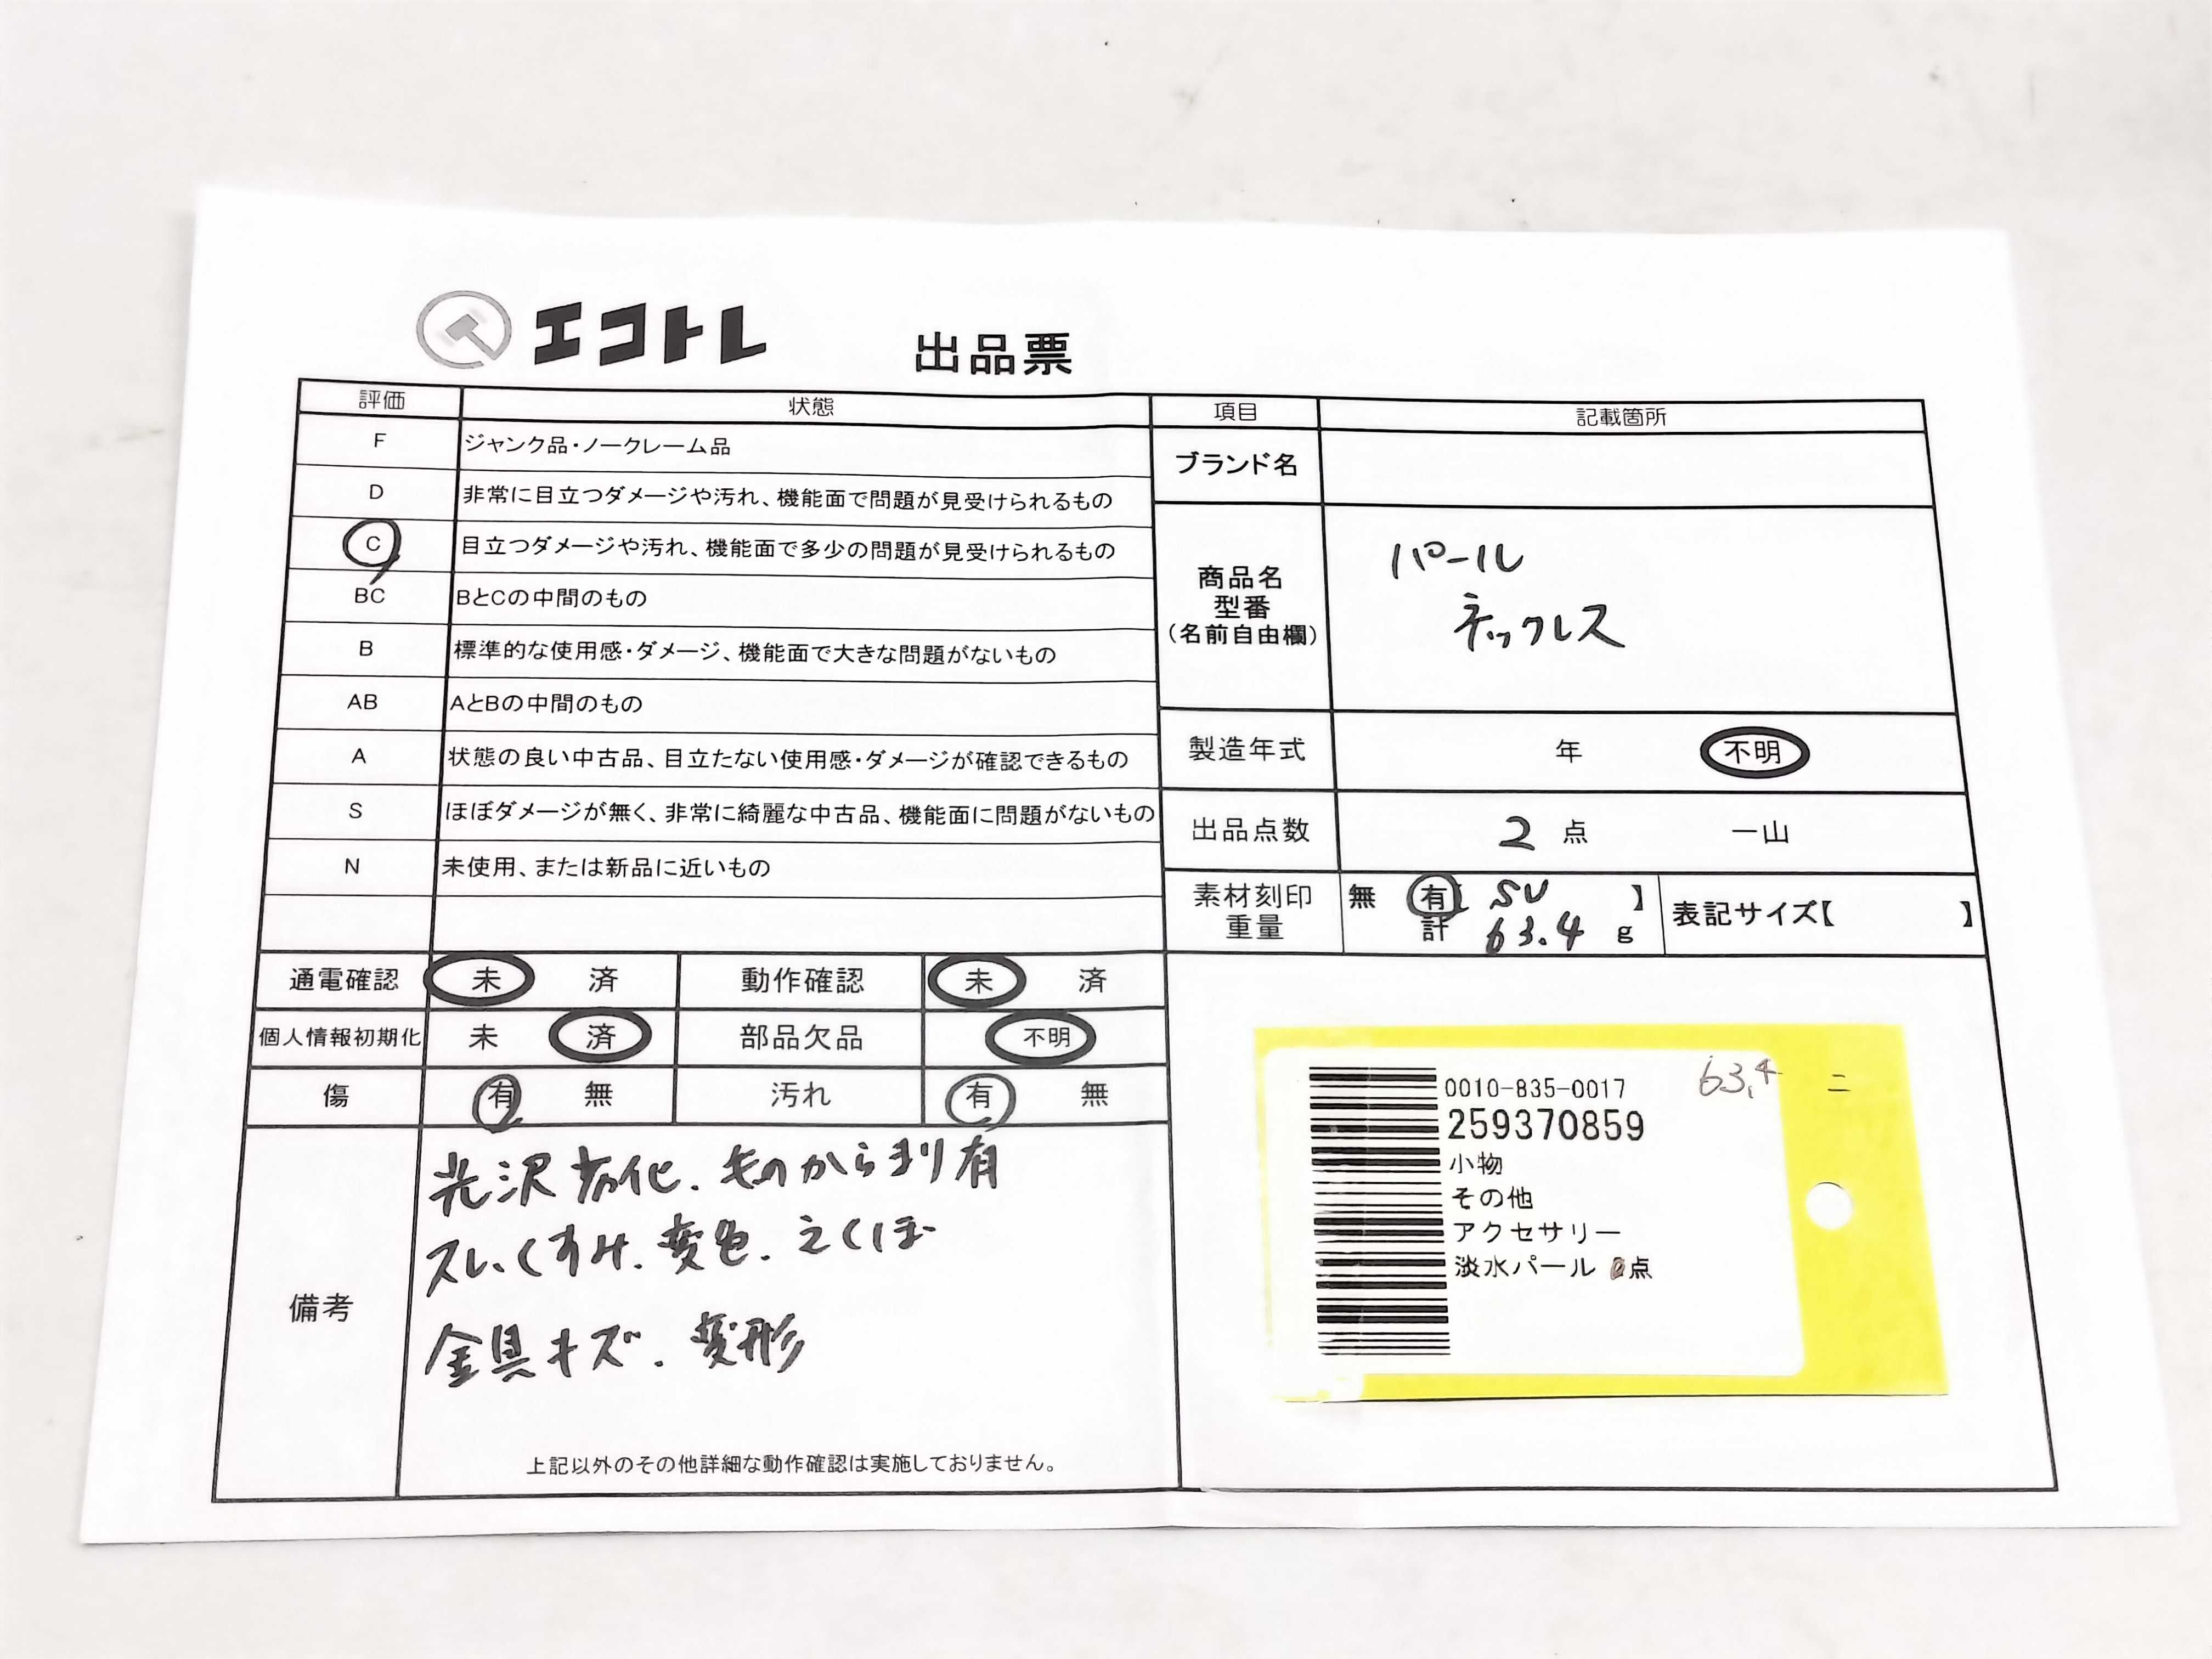 エコトレ 出品票
評価 状態 項目 記載箇所
F ジャンク品・ノークレーム品
D 非常に目立つダメージや汚れ、機能面で問題が見受けられるもの
C 目立つダメージや汚れ、機能面で多少の問題が見受けられるもの
BC BとCの中間のもの
B 標準的な使用感・ダメージ、機能面で大きな問題がないもの
AB AとBの中間のもの
A 状態の良い中古品、目立たない使用感・ダメージが確認できるもの
S ほぼダメージが無く、非常に綺麗な中古品、機能面に問題がないもの
N 未使用、または新品に近いもの
ブランド名
商品名
型番
(名前自由欄)
パール
ネックレス
製造年式 年 不明
出品点数 2 点 一山
素材刻印 無 有【 SV 】
重量 計 63.4 g
表記サイズ【 】
通電確認 未 済 動作確認 未 済
個人情報初期化 未 済 部品欠品 不明
傷 有 無 汚れ 有 無
備考
光沢劣化、ものからまり有
スレ、くすみ、変色、えくぼ
金具キズ、変形
上記以外のその他詳細な動作確認は実施しておりません。
0010-835-0017 63.4 ニ
259370859
小物
その他
アクセサリー
淡水パール 点